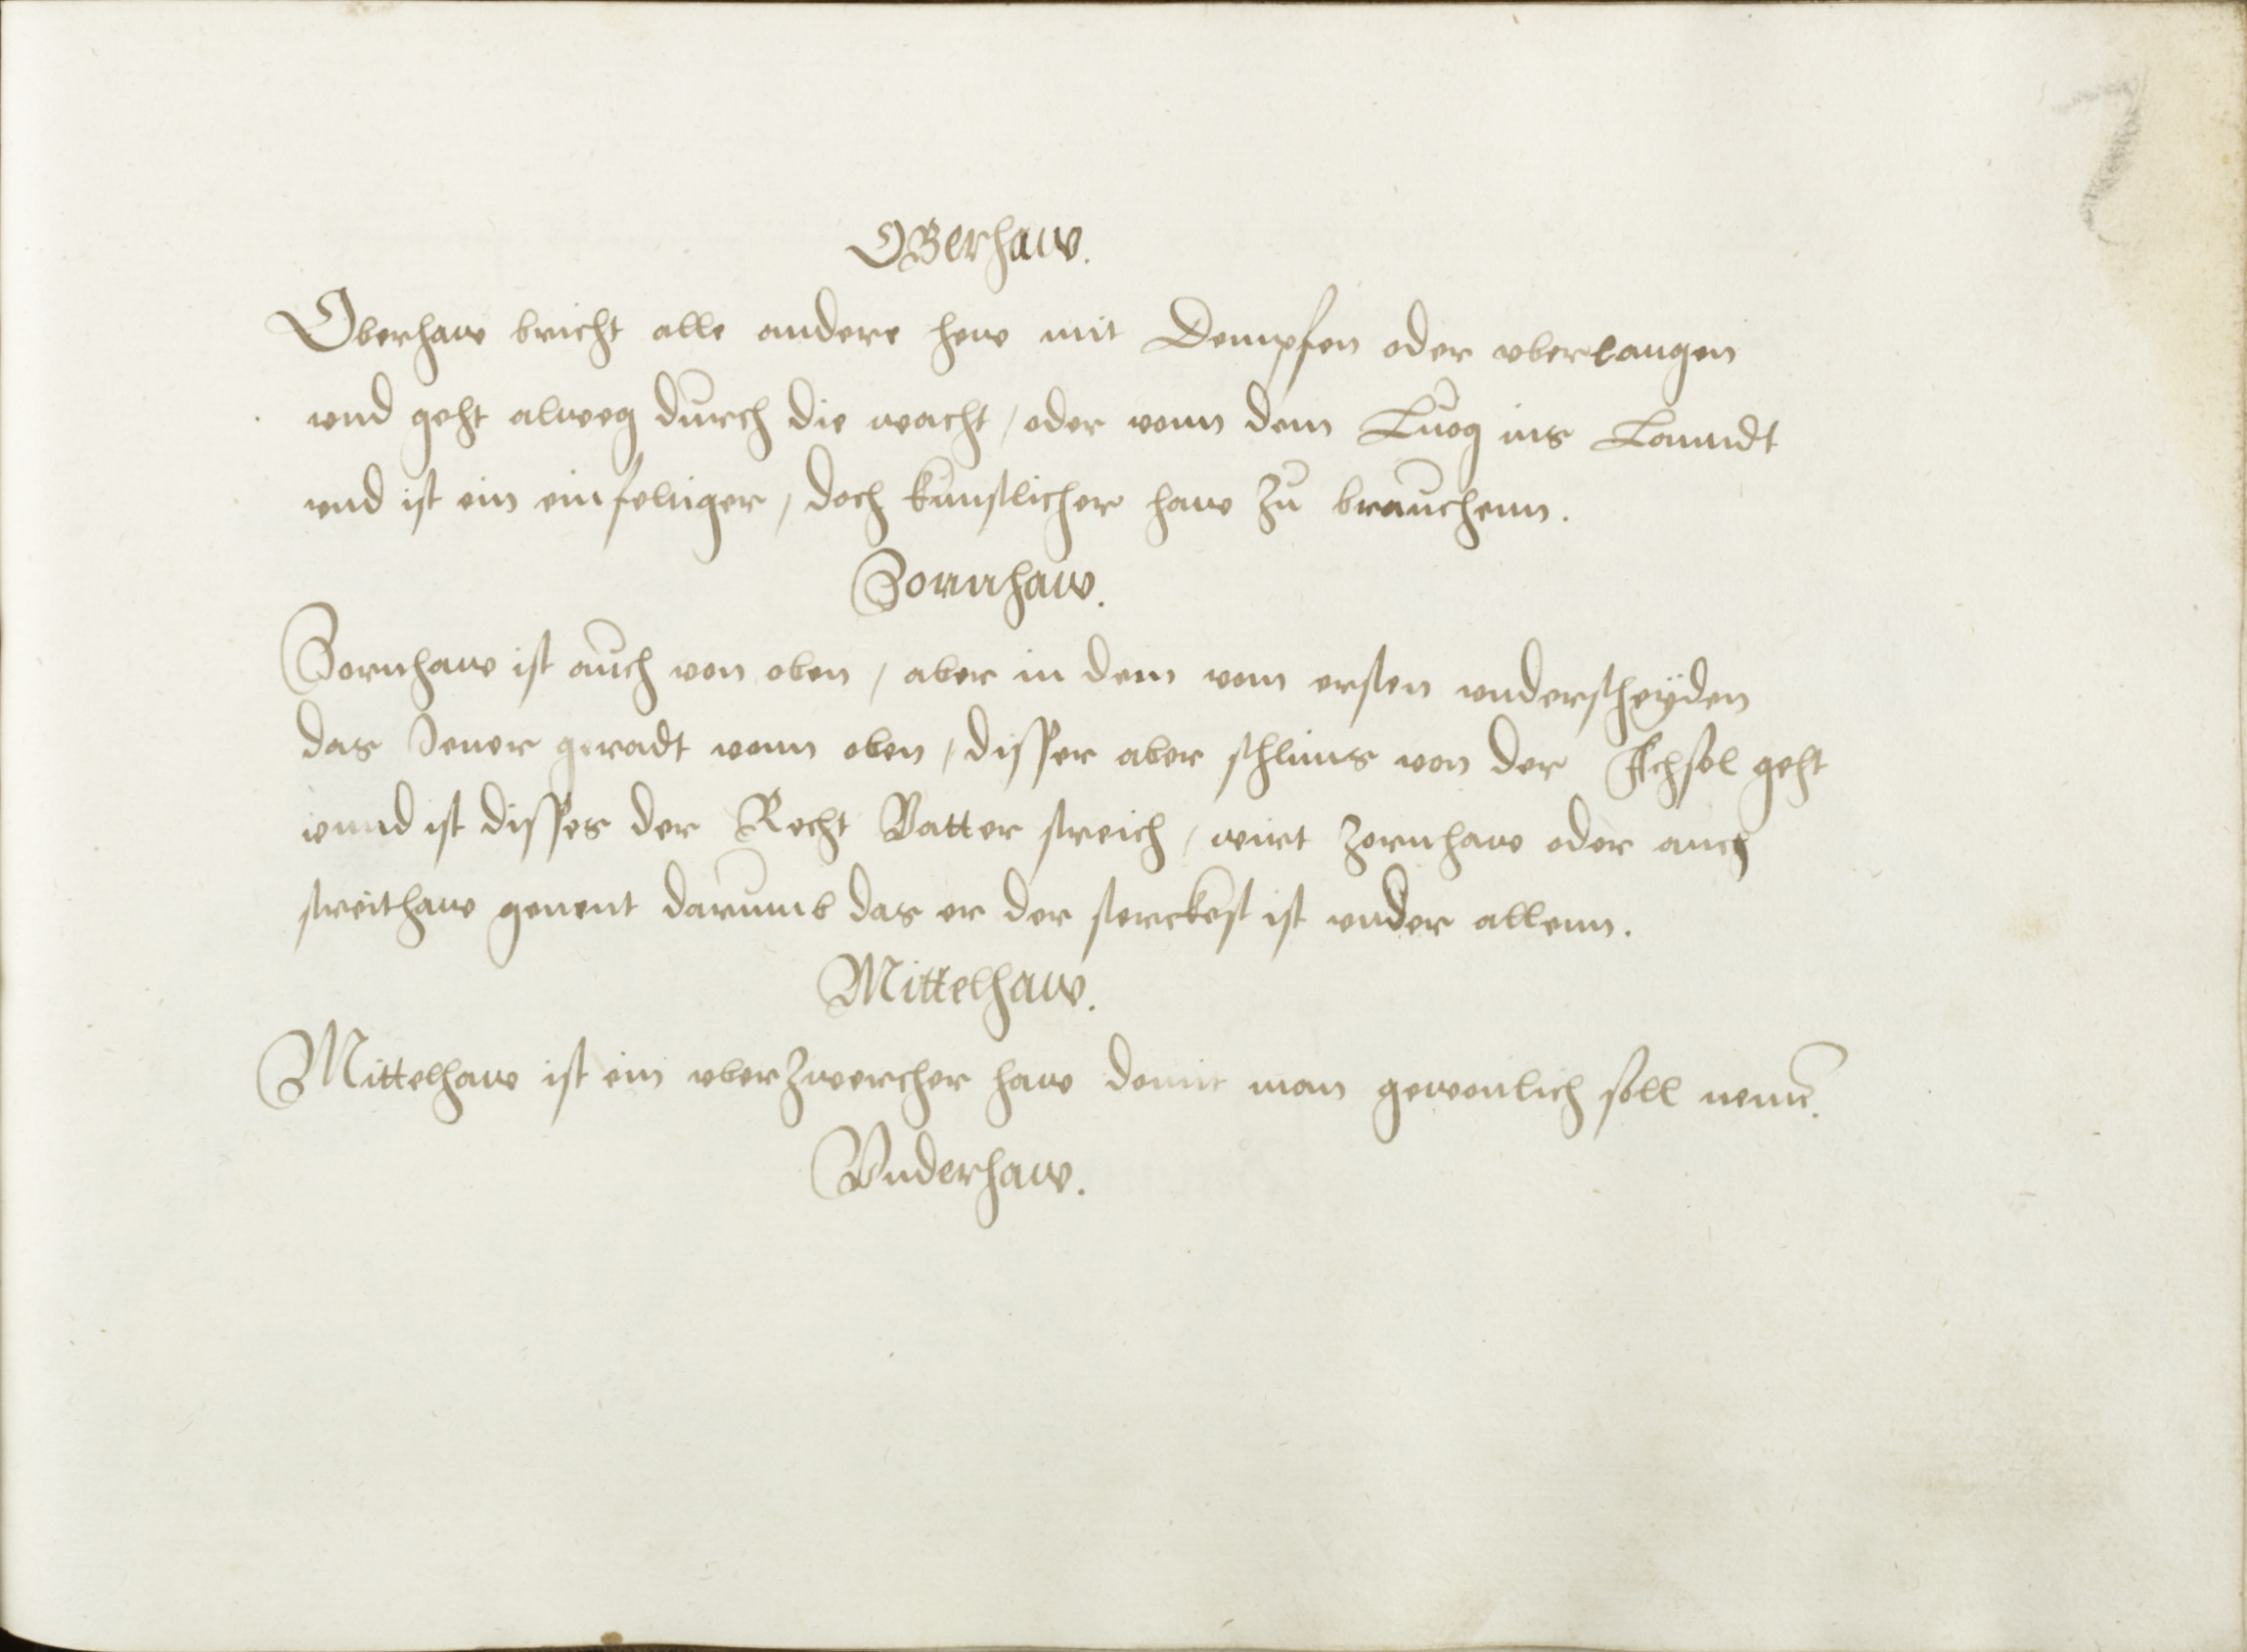 7
OBerhaw.
Oberhaw bricht alle andere hew mit Dempfen oder vberlangen
vnd geht alweg durch die wacht / oder vonn dem Luog ins Lanndt
vnd ist ein einfeltiger / doch kunstlicher haw zu brauchenn.
Zornhaw.
Zornhaw ist auch von oben / aber in dem vom ersten vnderscheÿden
das Jener geradt vonn oben / disser aber schlims von der Achsel geht
vnnd ist disses der Recht Vatter streich / wirt Zornhaw oder auch
streithaw genent darumb das er der sterckest ist vnder allenn.
Mittelhaw.
Mittelhaw ist ein vberzwercher haw domit man gewonlich soll nemē.
Vnderhaw.